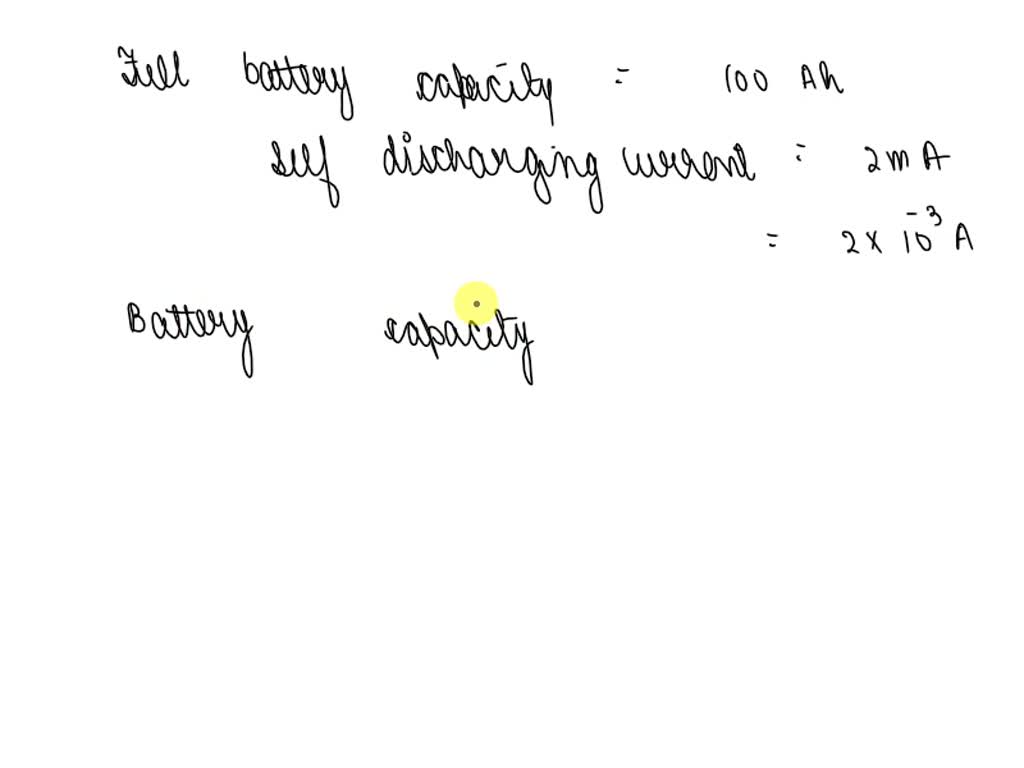 Full battery capacity = 100 Ah
self discharging current = 2mA
= 2 x 10⁻³ A
Battery capacity